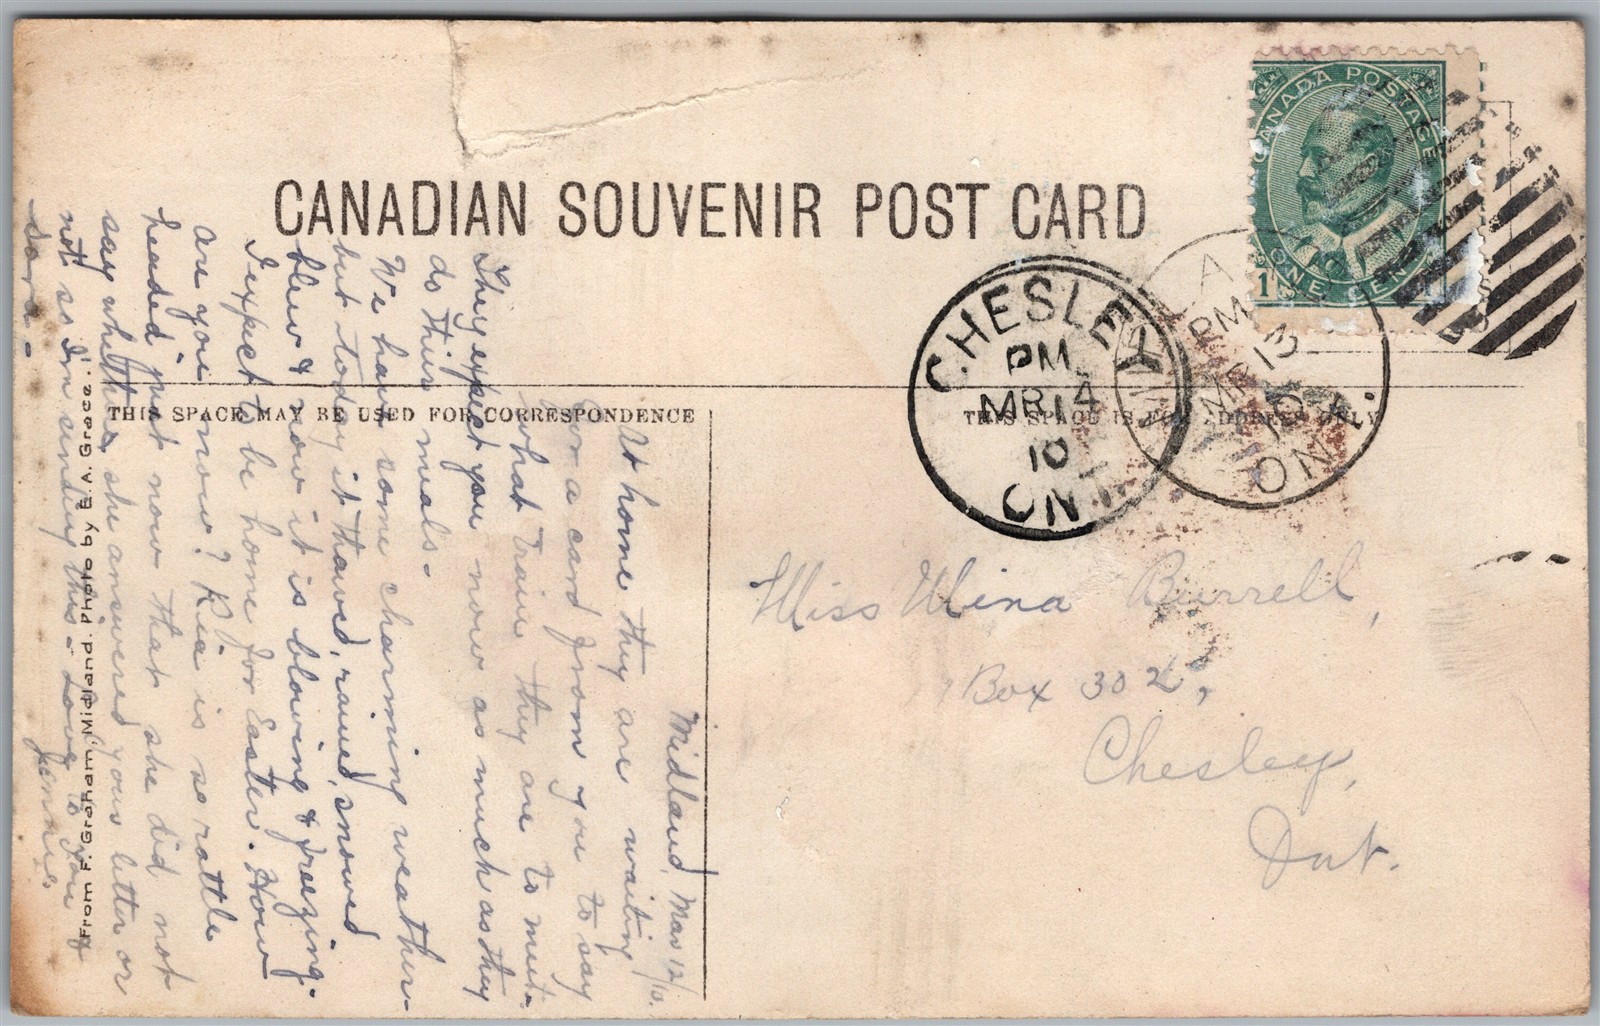 CANADIAN SOUVENIR POST CARD
CANADA POSTAGE
ONE CENT
1
CHESLEY
PM
MR 14
10
ONT.
PM
MR 13
10
ONT.
THIS SPACE MAY BE USED FOR CORRESPONDENCE
THIS SPACE IS FOR ADDRESS ONLY
From F. Graham, Midland. Photo by E. A. Grace.
Midland, Mar 12/10.
At home they are waiting
for a card from you to say
what train they are to meet.
They expect you now as much as they
do their meals.
We have some charming weather—
but today it thawed, rained, snowed
blew & now it is blowing & freezing.
I expect to be home for Easter. How
are you now? Ria is so rattle
headed just now that she did not
say whether she answered your letter or
not so I'm sending this — Love to you
Jennie.
Miss Mina Burrell,
Box 302,
Chesley,
Ont.